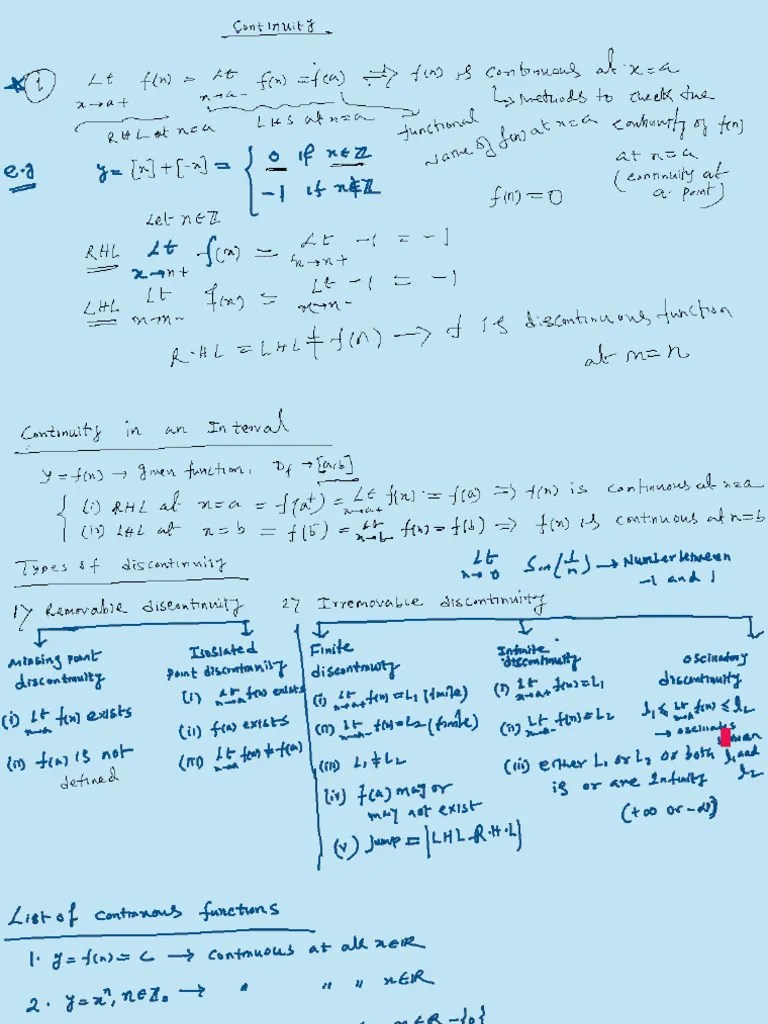 Continuity
① Lt x→a+ f(x) = Lt x→a- f(x) = f(a) ⇌ f(x) is continuous at x=a
RHL at x=a
LHS at x=a
functional value of f(x) at x=a
↳ methods to check the continuity of f(x) at x=a (continuity at a point)
e.g y = [x]+[-x] = { 0 if x∈Z
-1 if x∉Z
f(n)=0
Let n∈Z
RHL Lt x→n+ f(x) = Lt x→n+ -1 = -1
LHL Lt x→n- f(x) = Lt x→n- -1 = -1
R.HL = LHL ≠ f(n) → f is discontinuous function
at x=n
Continuity in an Interval
y=f(x) → given function, Df → [a,b]
(i) RHL at x=a = f(a+) = Lt x→a+ f(x) = f(a) ⇒ f(x) is continuous at x=a
(ii) LHL at x=b = f(b-) = Lt x→b- f(x) = f(b) ⇒ f(x) is continuous at x=b
Types of discontinuity
Lt x→0 Sin(1/x) → Number between
-1 and 1
1) Removable discontinuity 2) Irremovable discontinuity
Missing point
discontinuity
(i) Lt x→a f(x) exists
(ii) f(a) is not
defined
Isolated
point discontinuity
(i) Lt x→a f(x) exists
(ii) f(a) exists
(iii) Lt x→a f(x) ≠ f(a)
Finite
discontinuity
(i) Lt x→a+ f(x)=L1 (finite)
(ii) Lt x→a- f(x)=L2 (finite)
(iii) L1 ≠ L2
(iv) f(a) may or
may not exist
(v) Jump = |LHL-R.H.L|
Infinite
discontinuity
(i) Lt x→a+ f(x)=L1
(ii) Lt x→a- f(x)=L2
(iii) either L1 or L2 or both
is or are Infinity
(+∞ or -∞)
oscillatory
discontinuity
l1 ≤ Lt x→a f(x) ≤ l2
→ oscillates
l1 and
l2
List of continuous functions
1. y=f(x)= c → continuous at all x∈R
2. y=xⁿ, n∈Z → " " " x∈R
x∈R-{0}